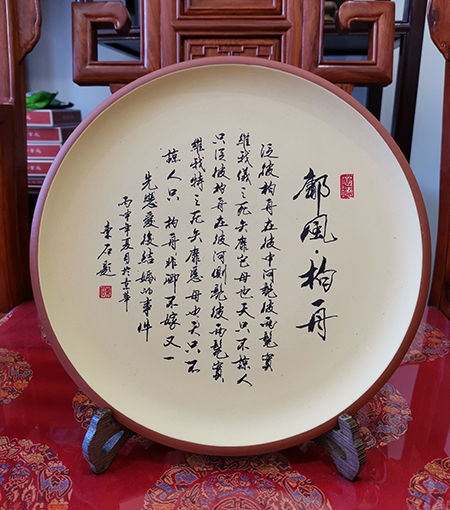 鄘風·柏舟
泛彼柏舟在彼中河髧彼两髦實
維我儀之死矢靡它母也天只不諒人
只泛彼柏舟在彼河側髧彼两髦實
維我特之死矢靡慝母也天只不
諒人只 柏舟非卿不嫁又一
先戀愛後結婚的事件
丙申年夏月於京華
東石题